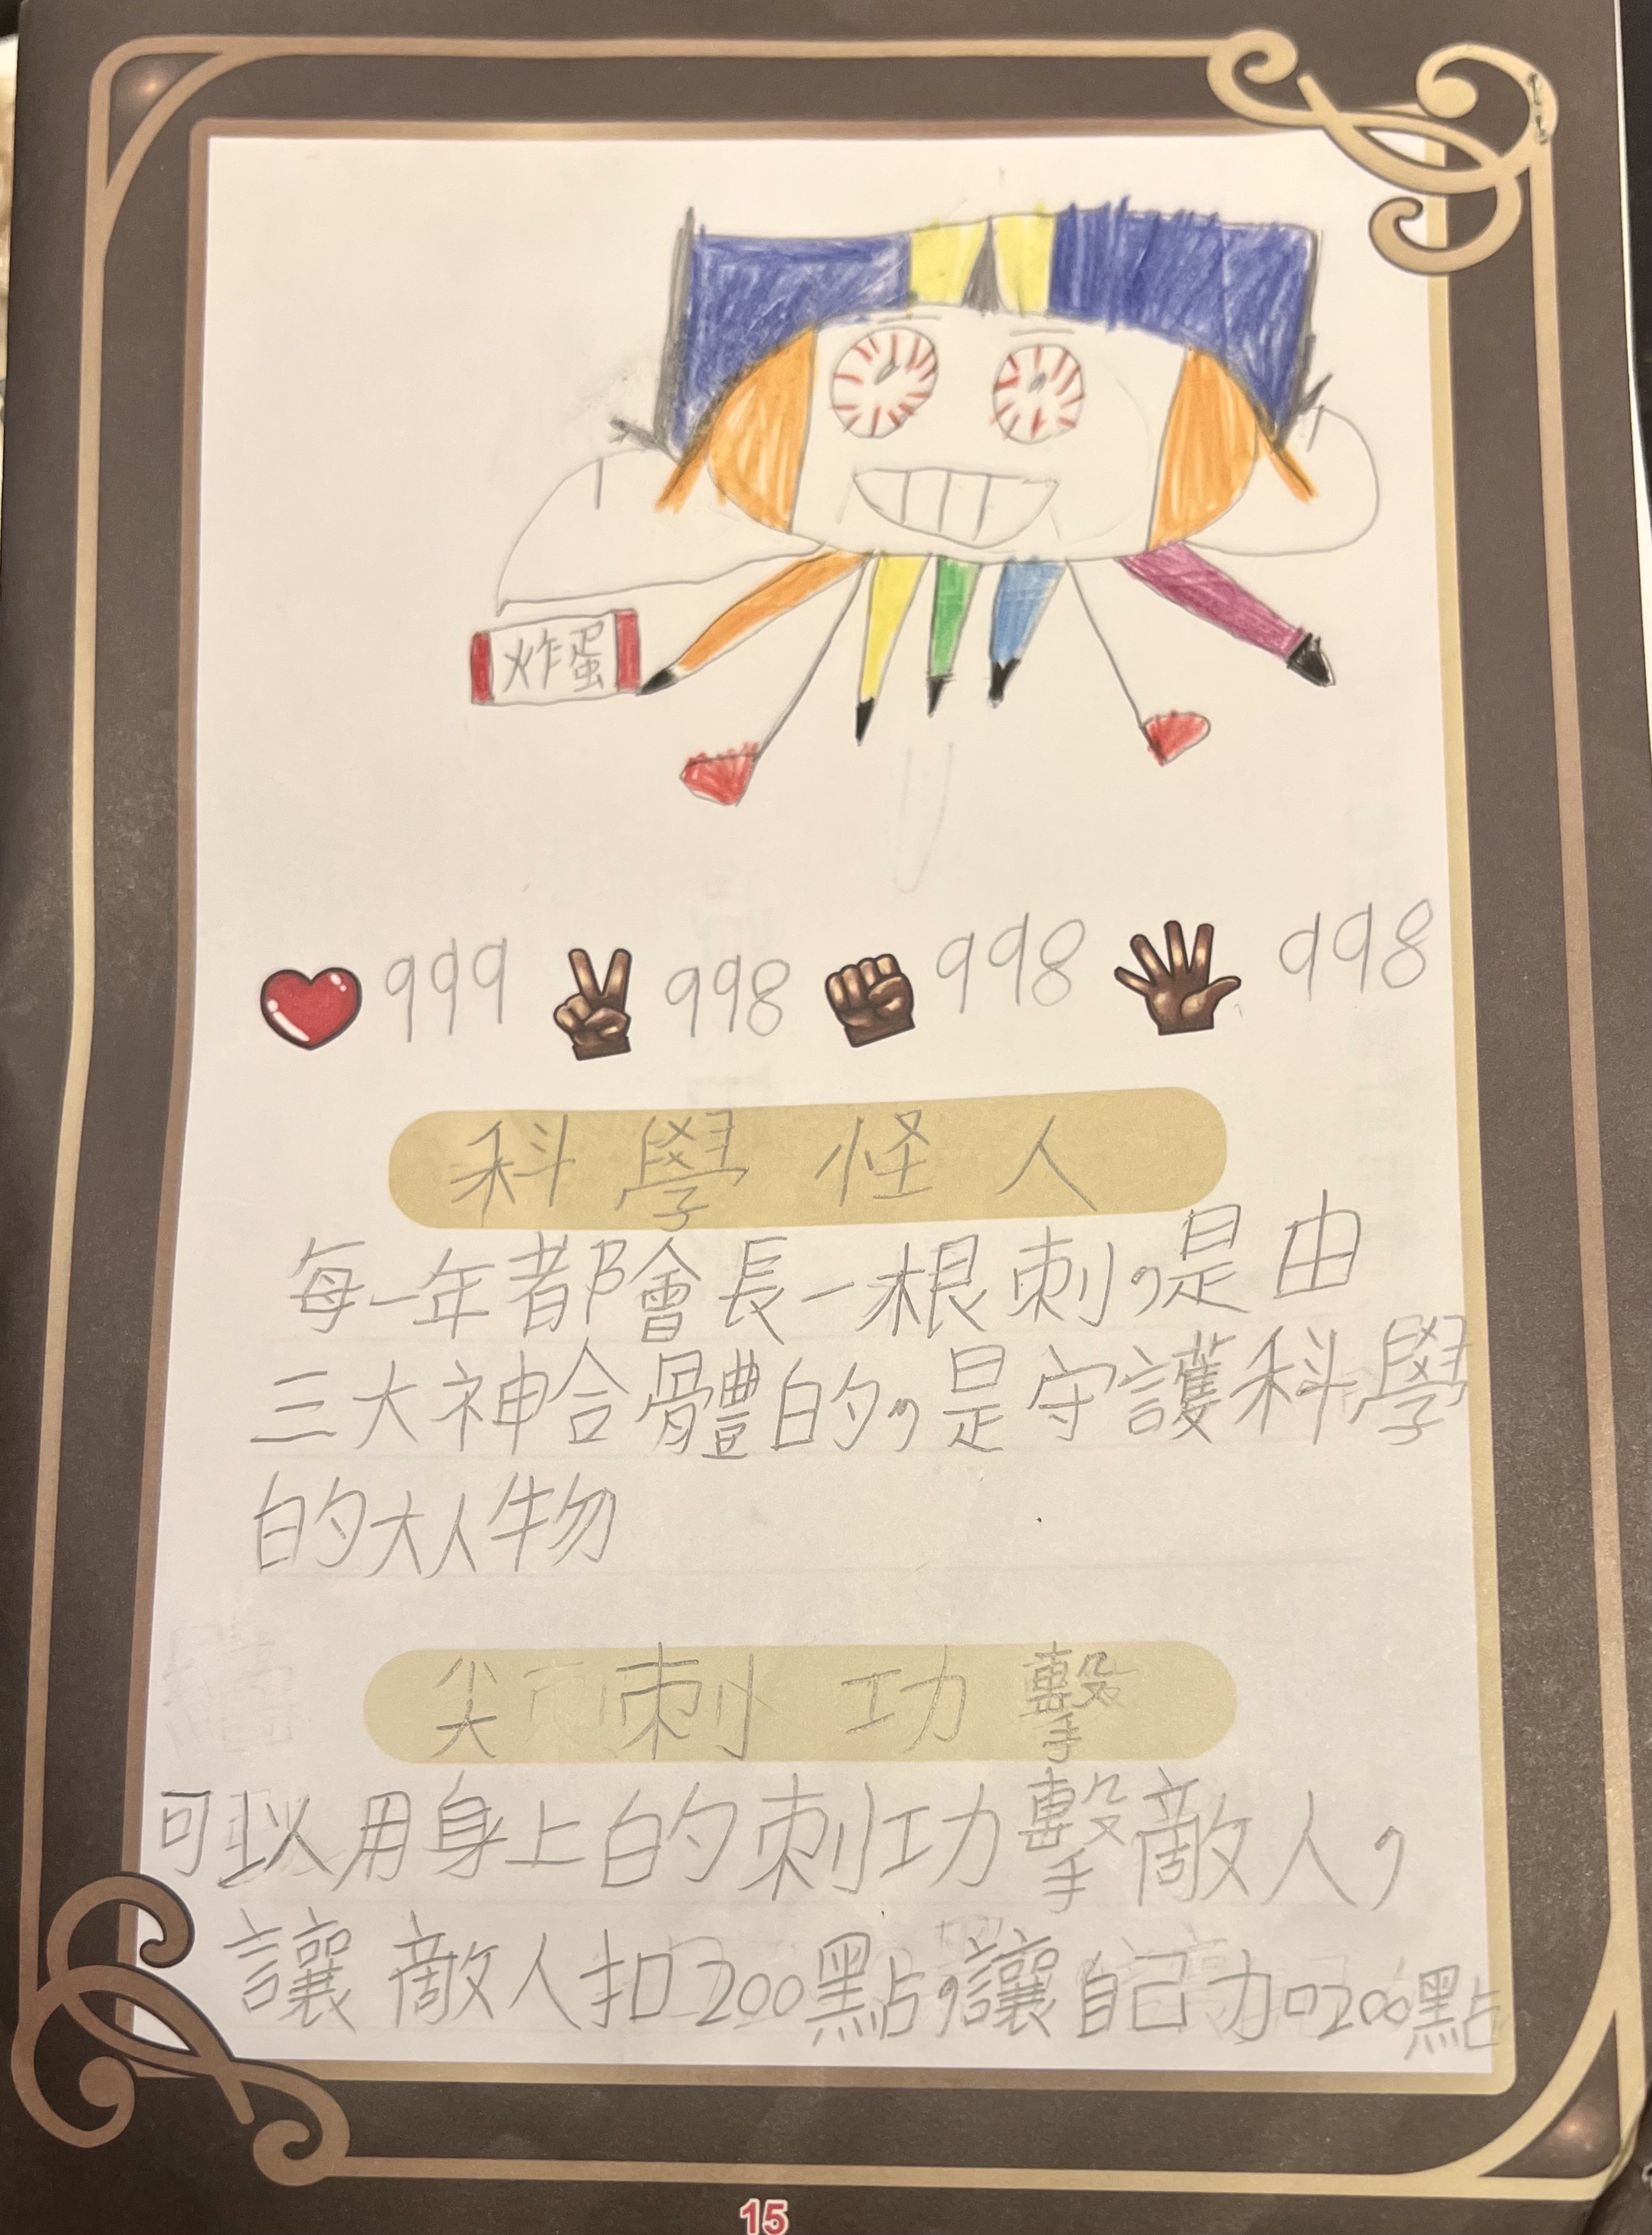 炸蛋
999 998 998 998
科學怪人
每一年都會長一根刺,是由
三大神合體的,是守護科學
的大人物
尖刺功擊
可以用身上的刺功擊敵人,
讓敵人扣200點,讓自己加200點
15